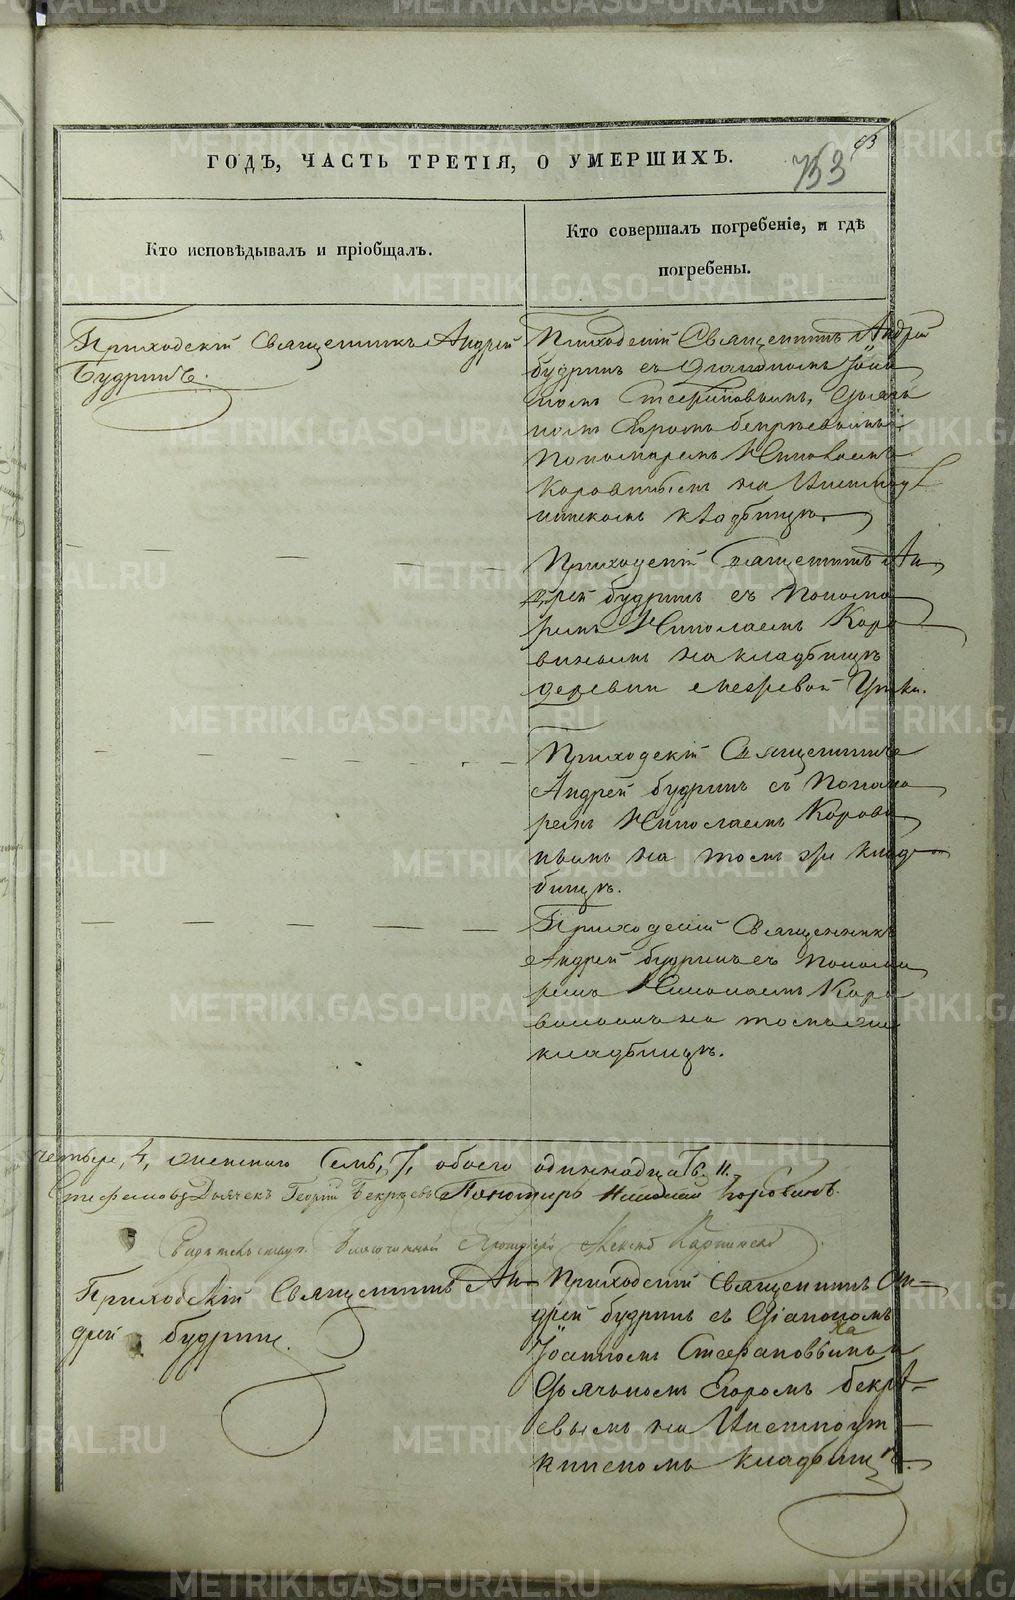 METRIKI.GASO-URAL.RU
ГОДЪ, ЧАСТЬ ТРЕТІЯ, О УМЕРШИХЪ.
753
93
Кто исповѣдывалъ и пріобщалъ.
Кто совершалъ погребеніе, и гдѣ
погребены.
Приходскій Священникъ Андрей
Будринъ.
Приходскій Священникъ Андрей
будринъ съ Діакономъ Іоан
номъ Стефановымъ, Дьячь
комъ Егоромъ бекряевымъ
Пономаремъ Николаемъ
Коровинымъ на
кладбищѣ.
Приходскій Священникъ Ан
дрей будринъ съ Понома
ремъ Николаемъ Коро
винымъ на кладбищѣ
деревни Утки.
Приходскій Священникъ
Андрей будринъ съ Понома
ремъ Николаемъ Корови
нымъ на томъ же клад
бищѣ.
Приходскій Священникъ
Андрей будринъ съ Понома
ремъ Николаемъ Коро
винымъ на томъ же
кладбищѣ.
четыре, 4, женскаго Семь, 7, обоего одиннадцать. 11.
Стефановъ Дьячекъ Георгій Бекряевъ Пономарь Николай Коровинъ.
Приходскій Священникъ Ан
дрей будринъ.
Приходскій Священникъ Ан
дрей будринъ съ Діакономъ
Іоанномъ Стефановымъ и
Дьячькомъ Егоромъ бекря
евымъ на
кладбищѣ.